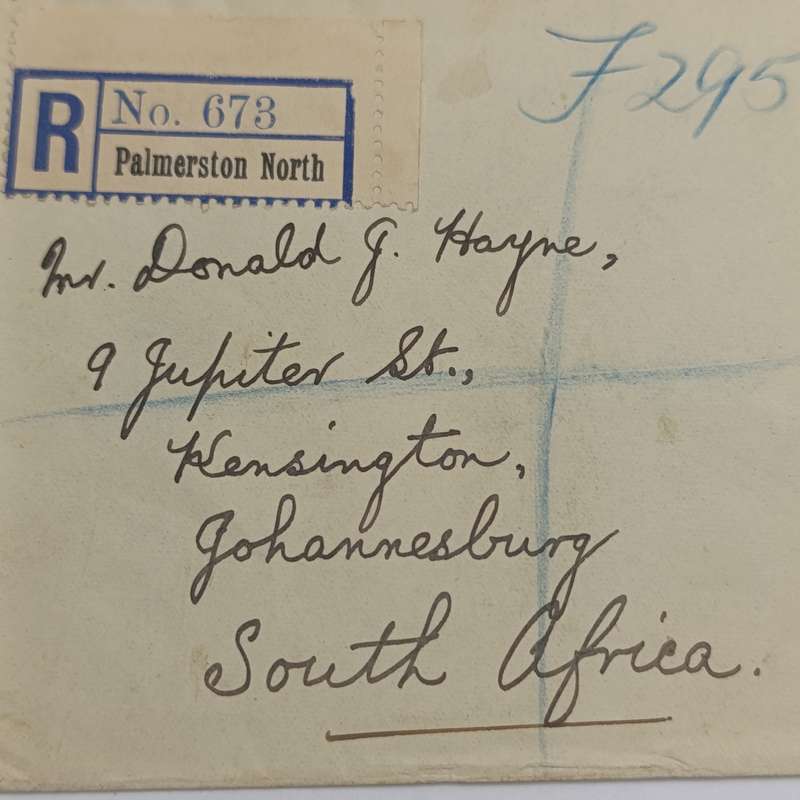 R No. 673
Palmerston North
F295
Mr. Donald J. Hayne,
9 Jupiter St.,
Kensington,
Johannesburg
South Africa.